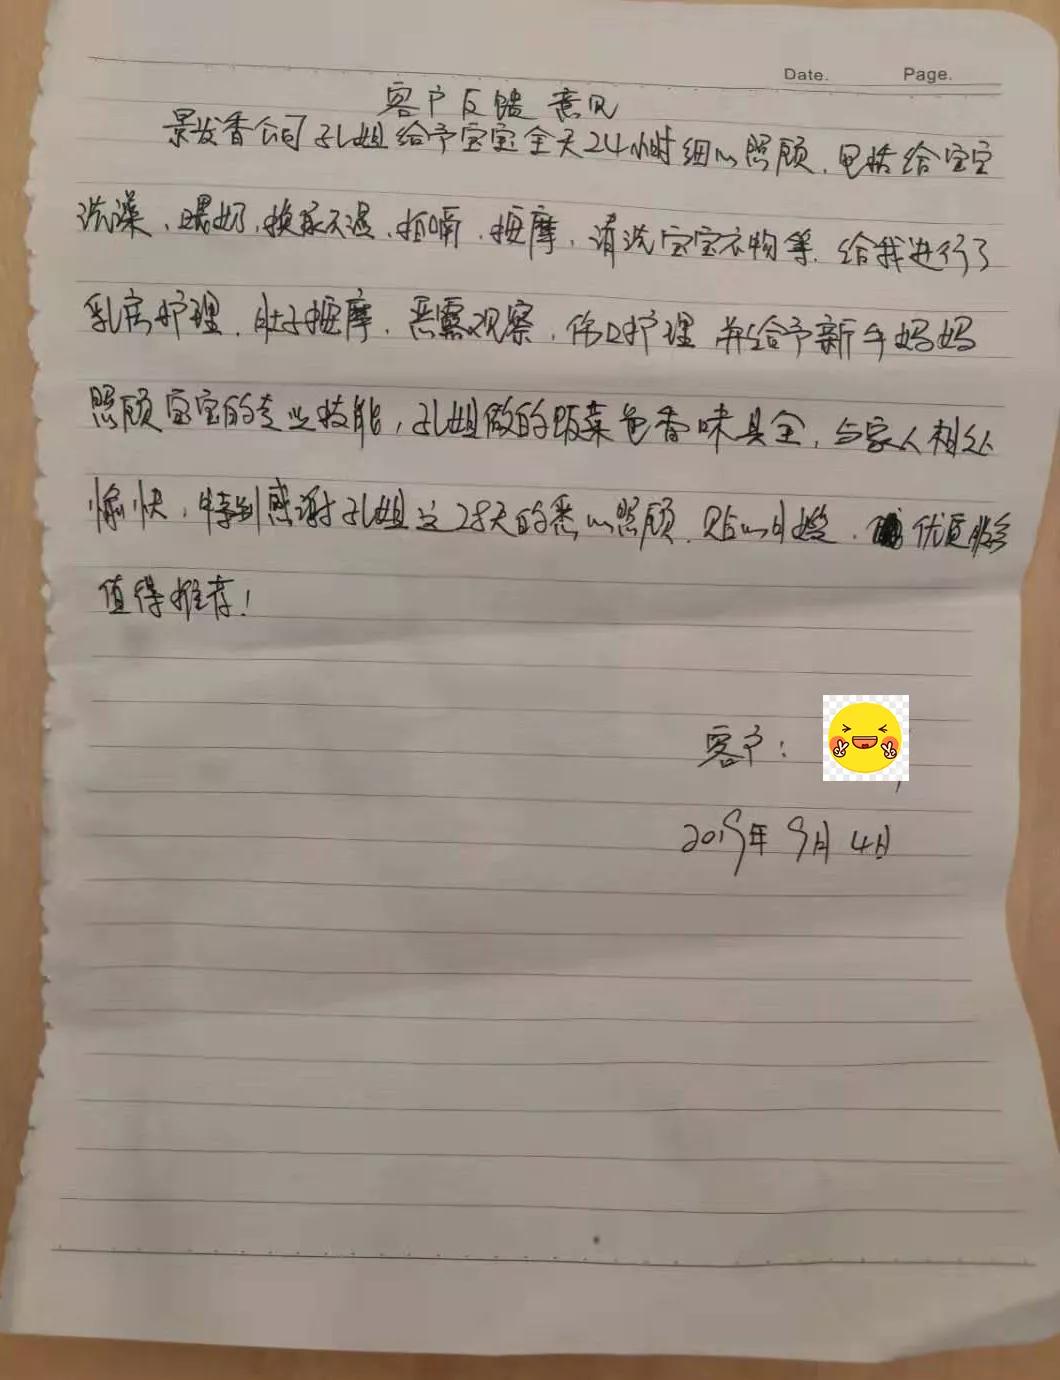 Date. Page.
客户反馈意见
景发香公司孔姐给予宝宝全天24小时细心照顾、包括给宝宝
洗澡、喂奶,换尿不湿、拍嗝、按摩,清洗宝宝衣物等.给我进行了
乳房护理、肚子按摩,恶露观察,伤口护理 并给予新手妈妈
照顾宝宝的专业技能,孔姐做的饭菜色香味具全,与家人相处
愉快,特别感谢孔姐这28天的悉心照顾.贴心月嫂,优质服务
值得推荐!
客户:
2019年9月4日